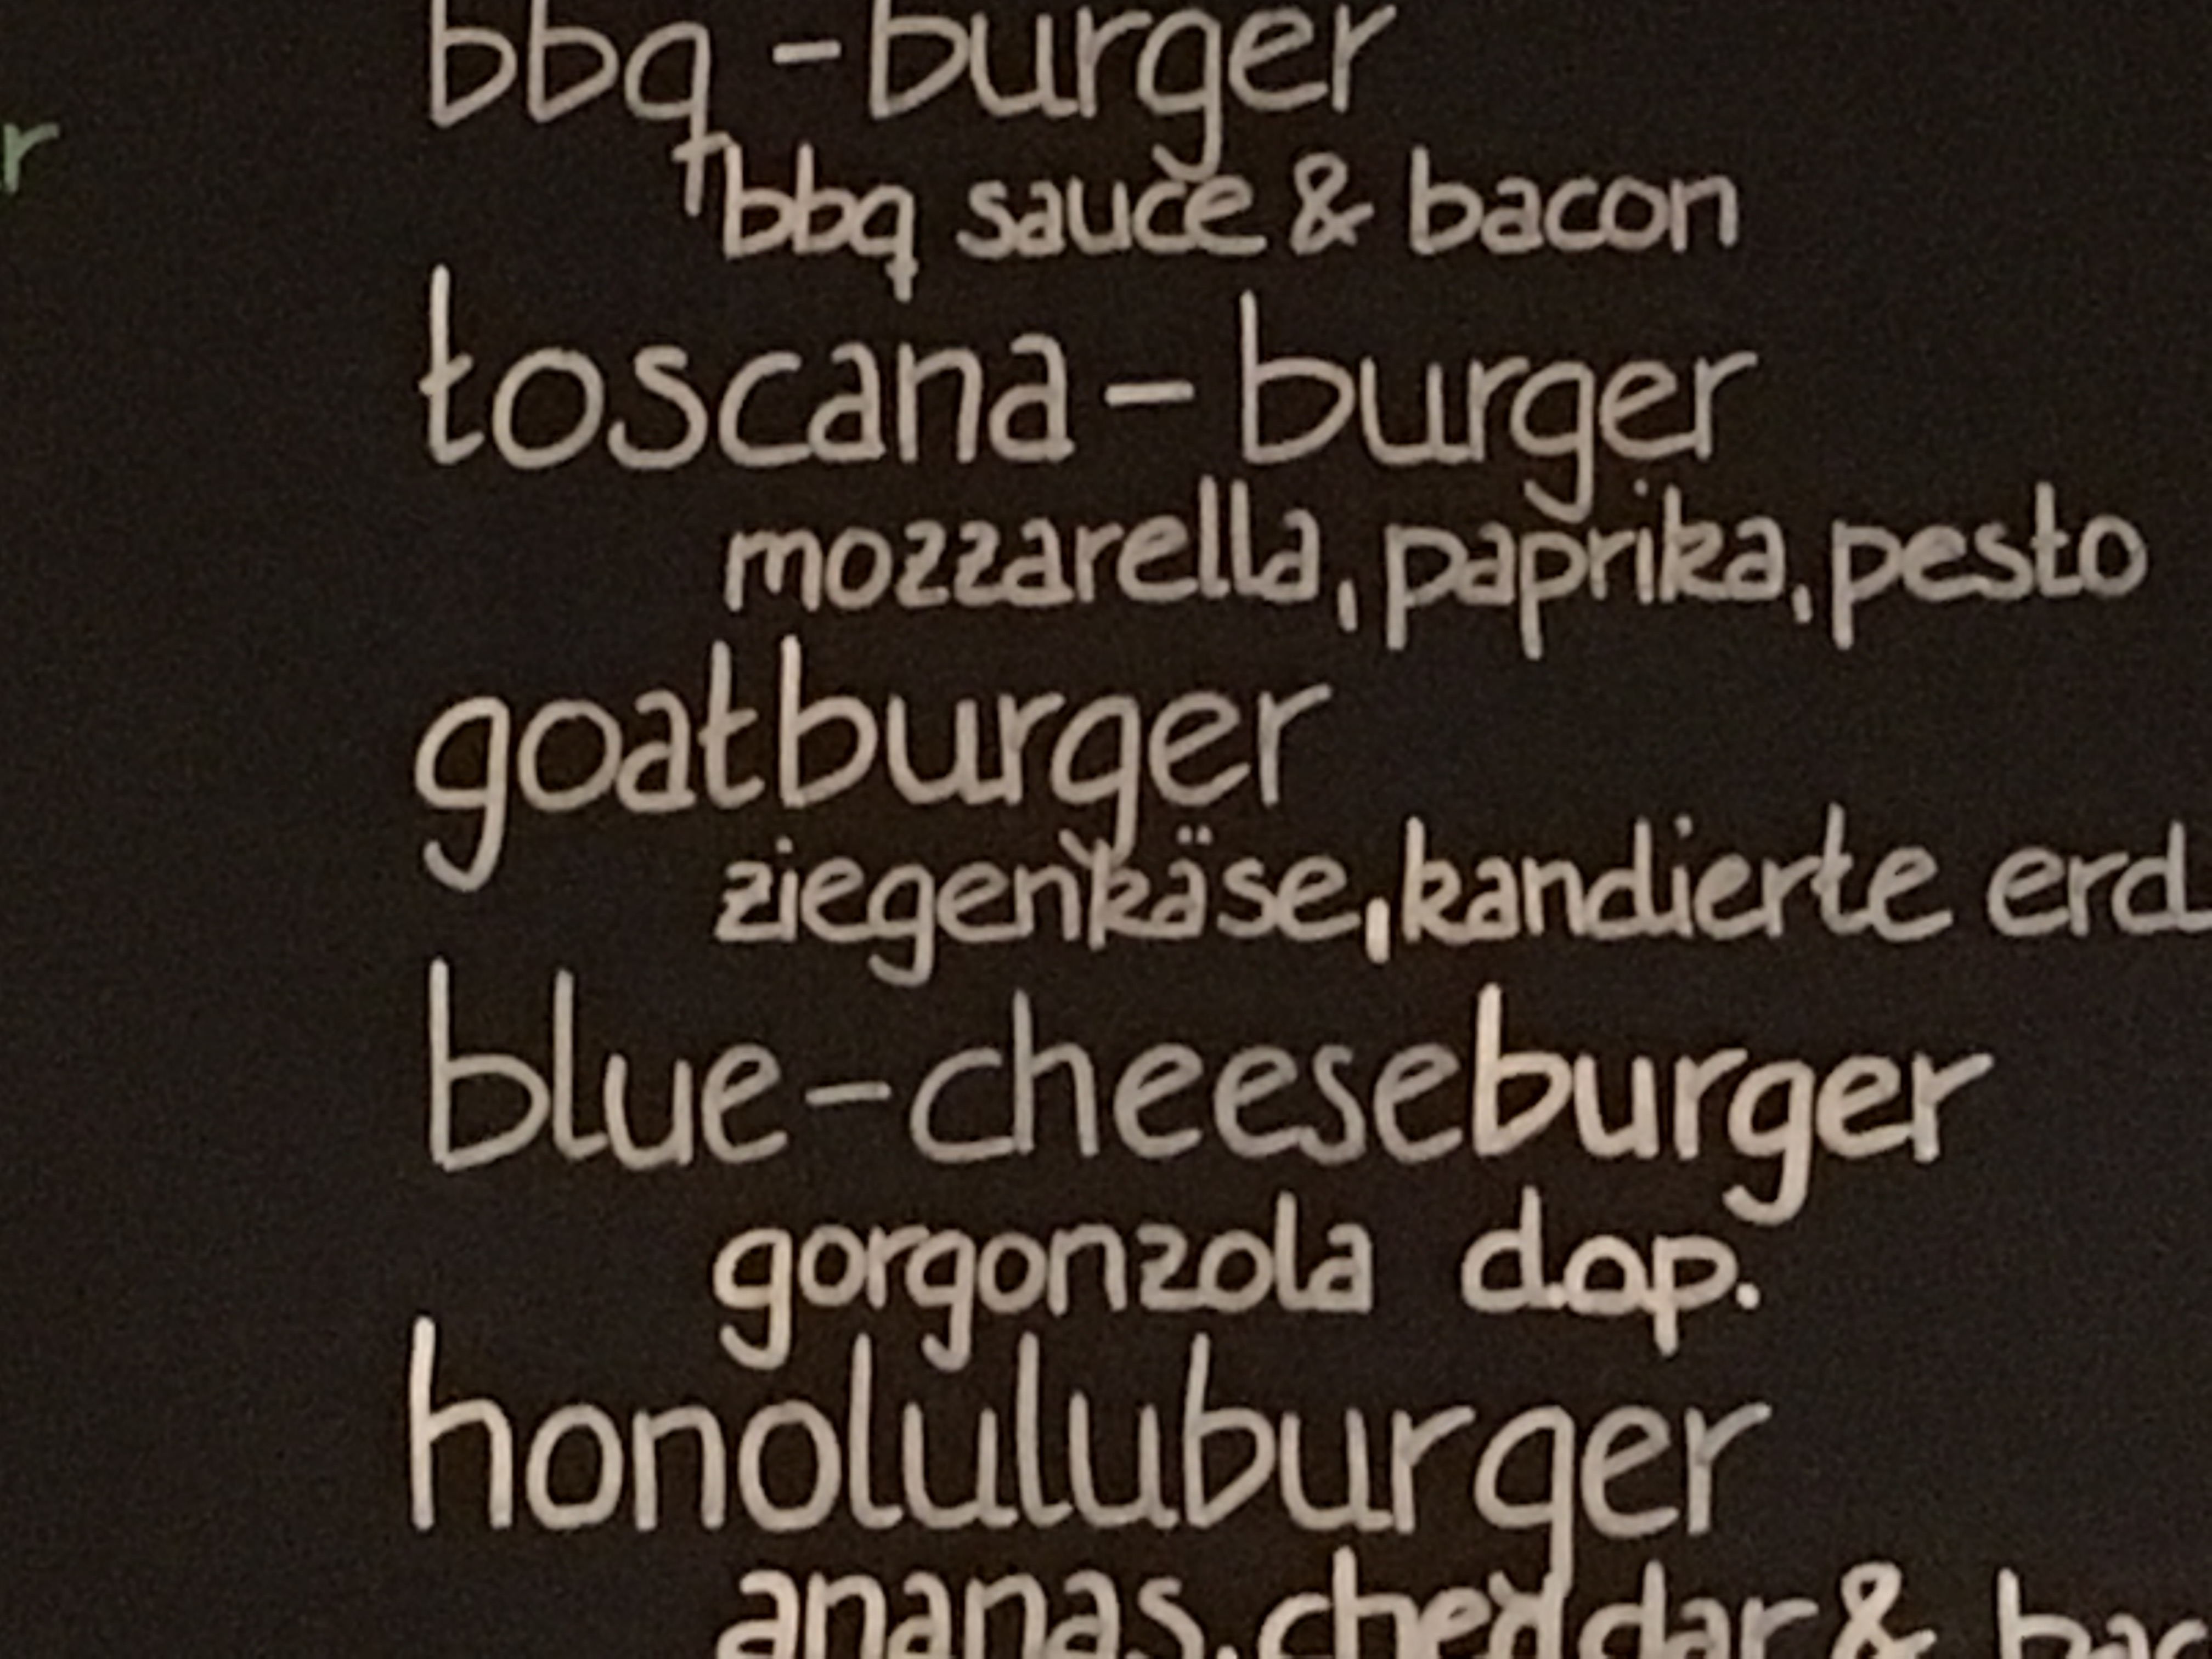 bbq - burger
bbq sauce & bacon
toscana - burger
mozzarella, paprika, pesto
goatburger
ziegenkäse, kandierte erd
blue-cheeseburger
gorgonzola d.o.p.
honoluluburger
ananas, cheddar & bac